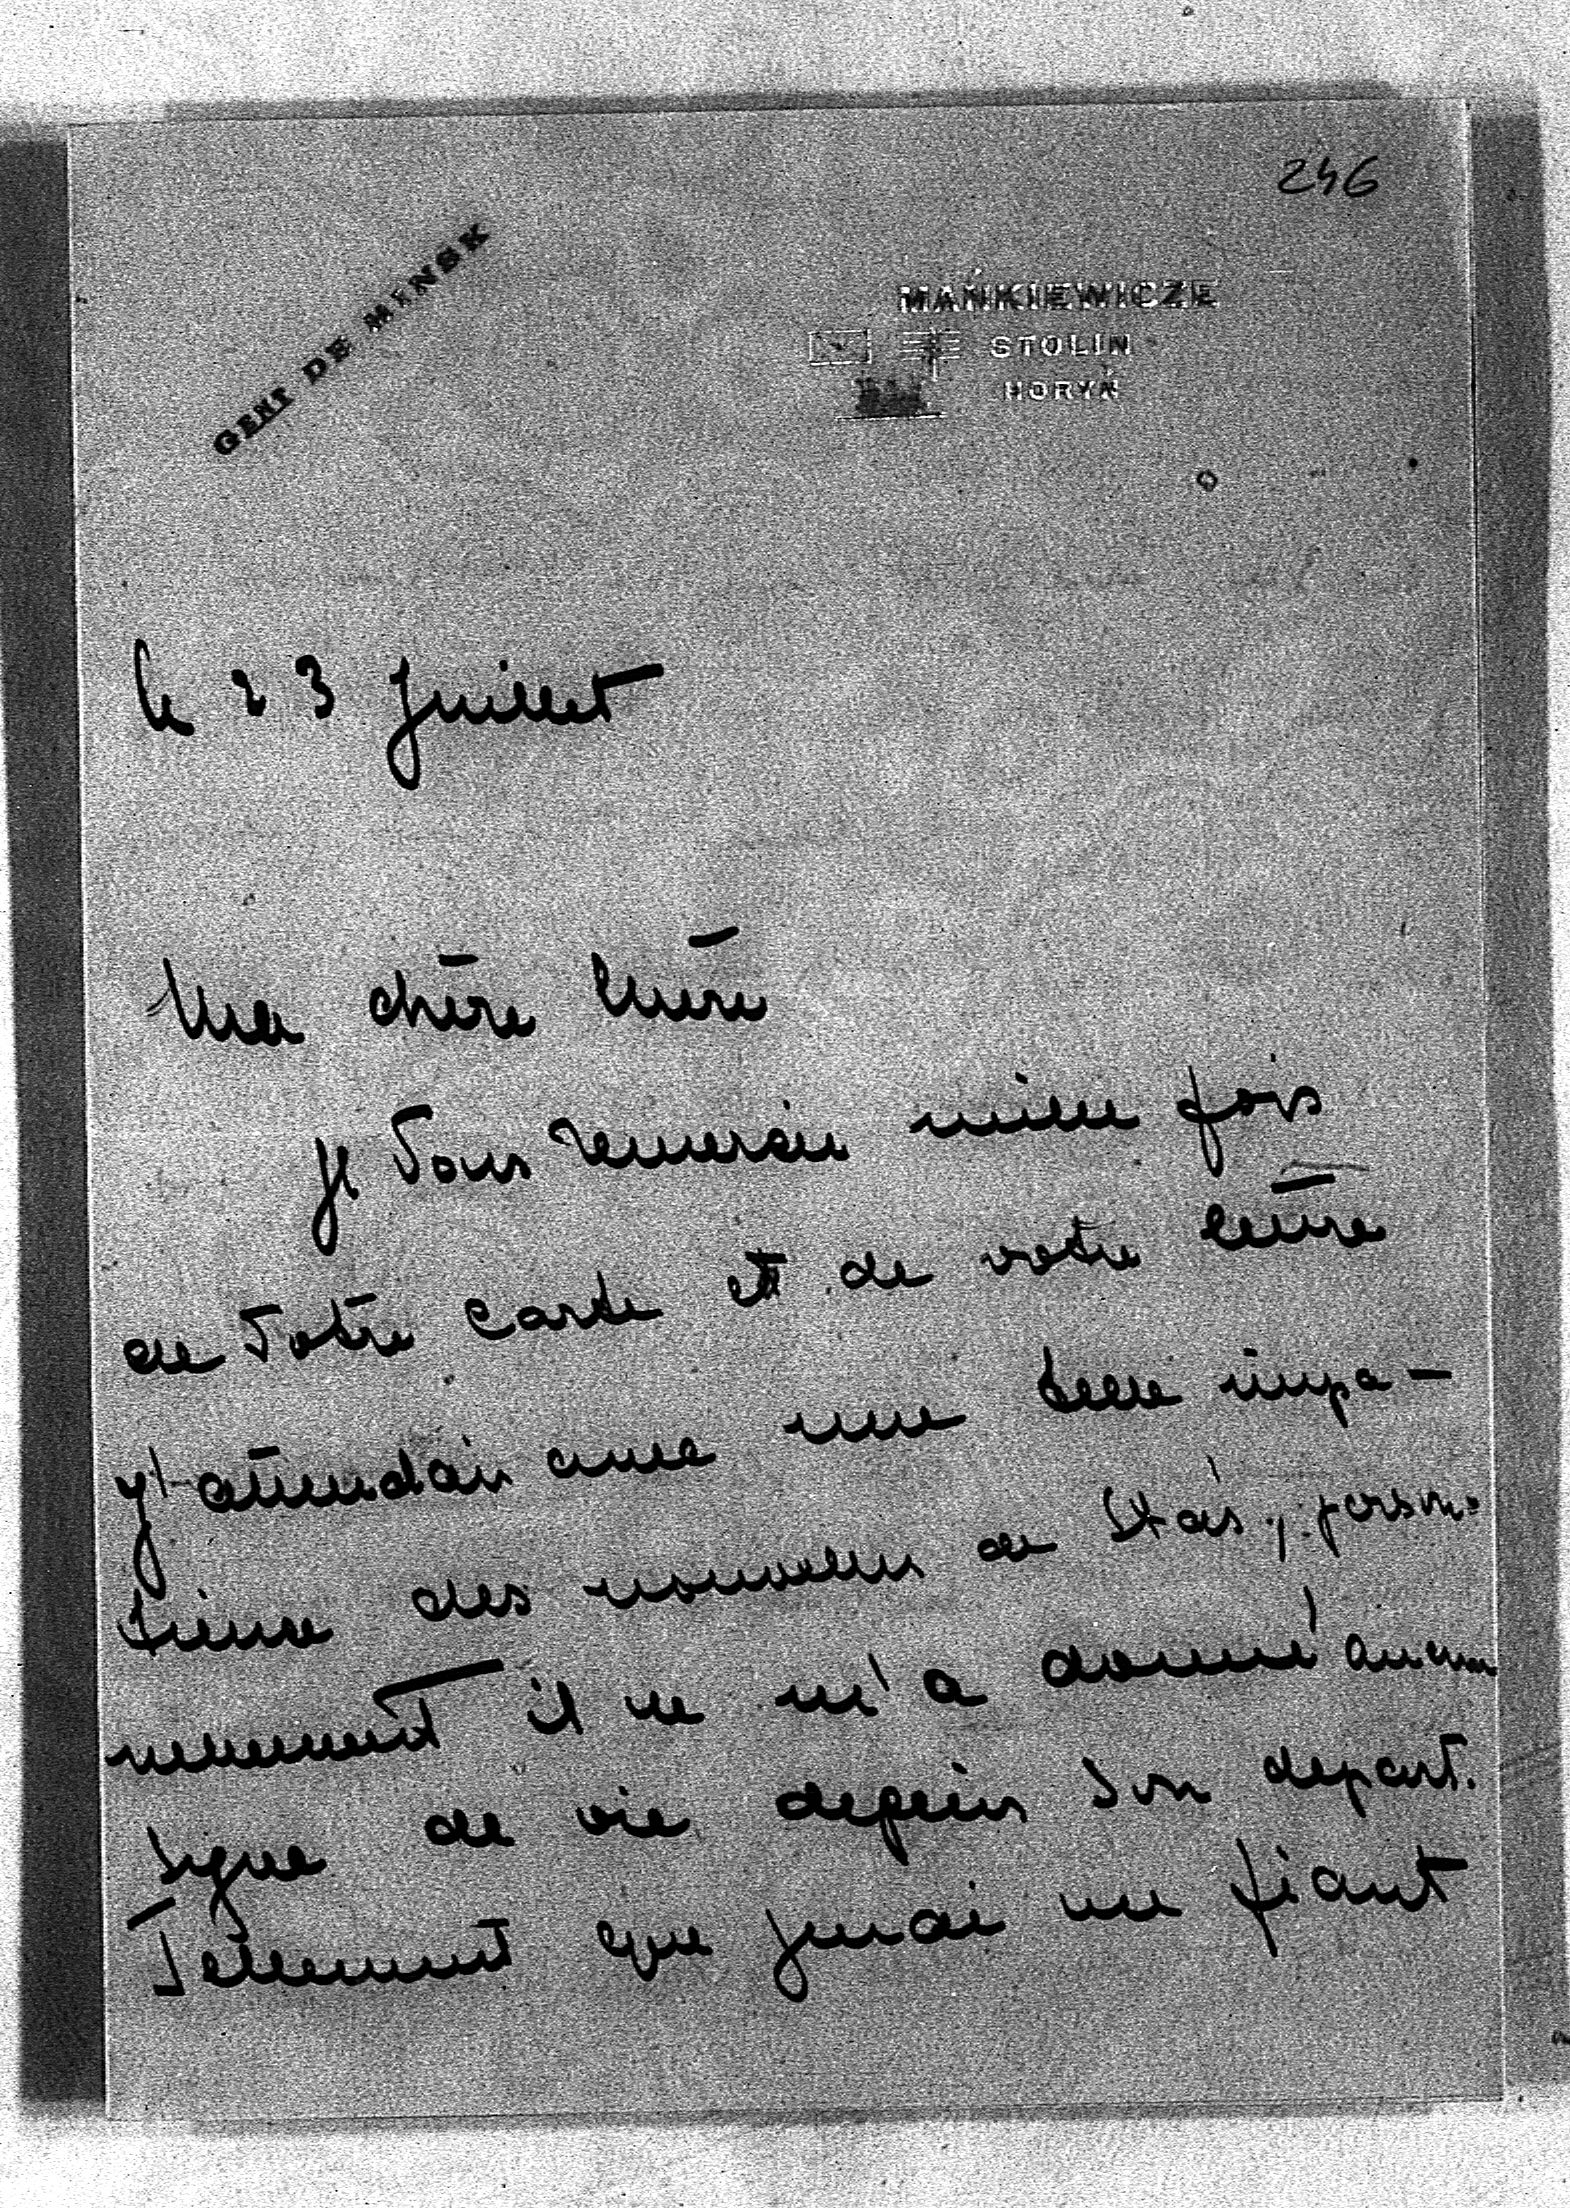 246
GENT DE MINSK
MAŃKIEWICZE
STOLIN
HORYŃ
le 23 Juillet
Ma chère Mère
Je Vous remercie mille fois
de Votre carte et de votre lettre
j'attendais avec une telle impa-
tience des nouvelles de Staś, person-
nellement il ne m'a donné aucun
signe de vie depuis son depart.
Tellement que j'envoie un